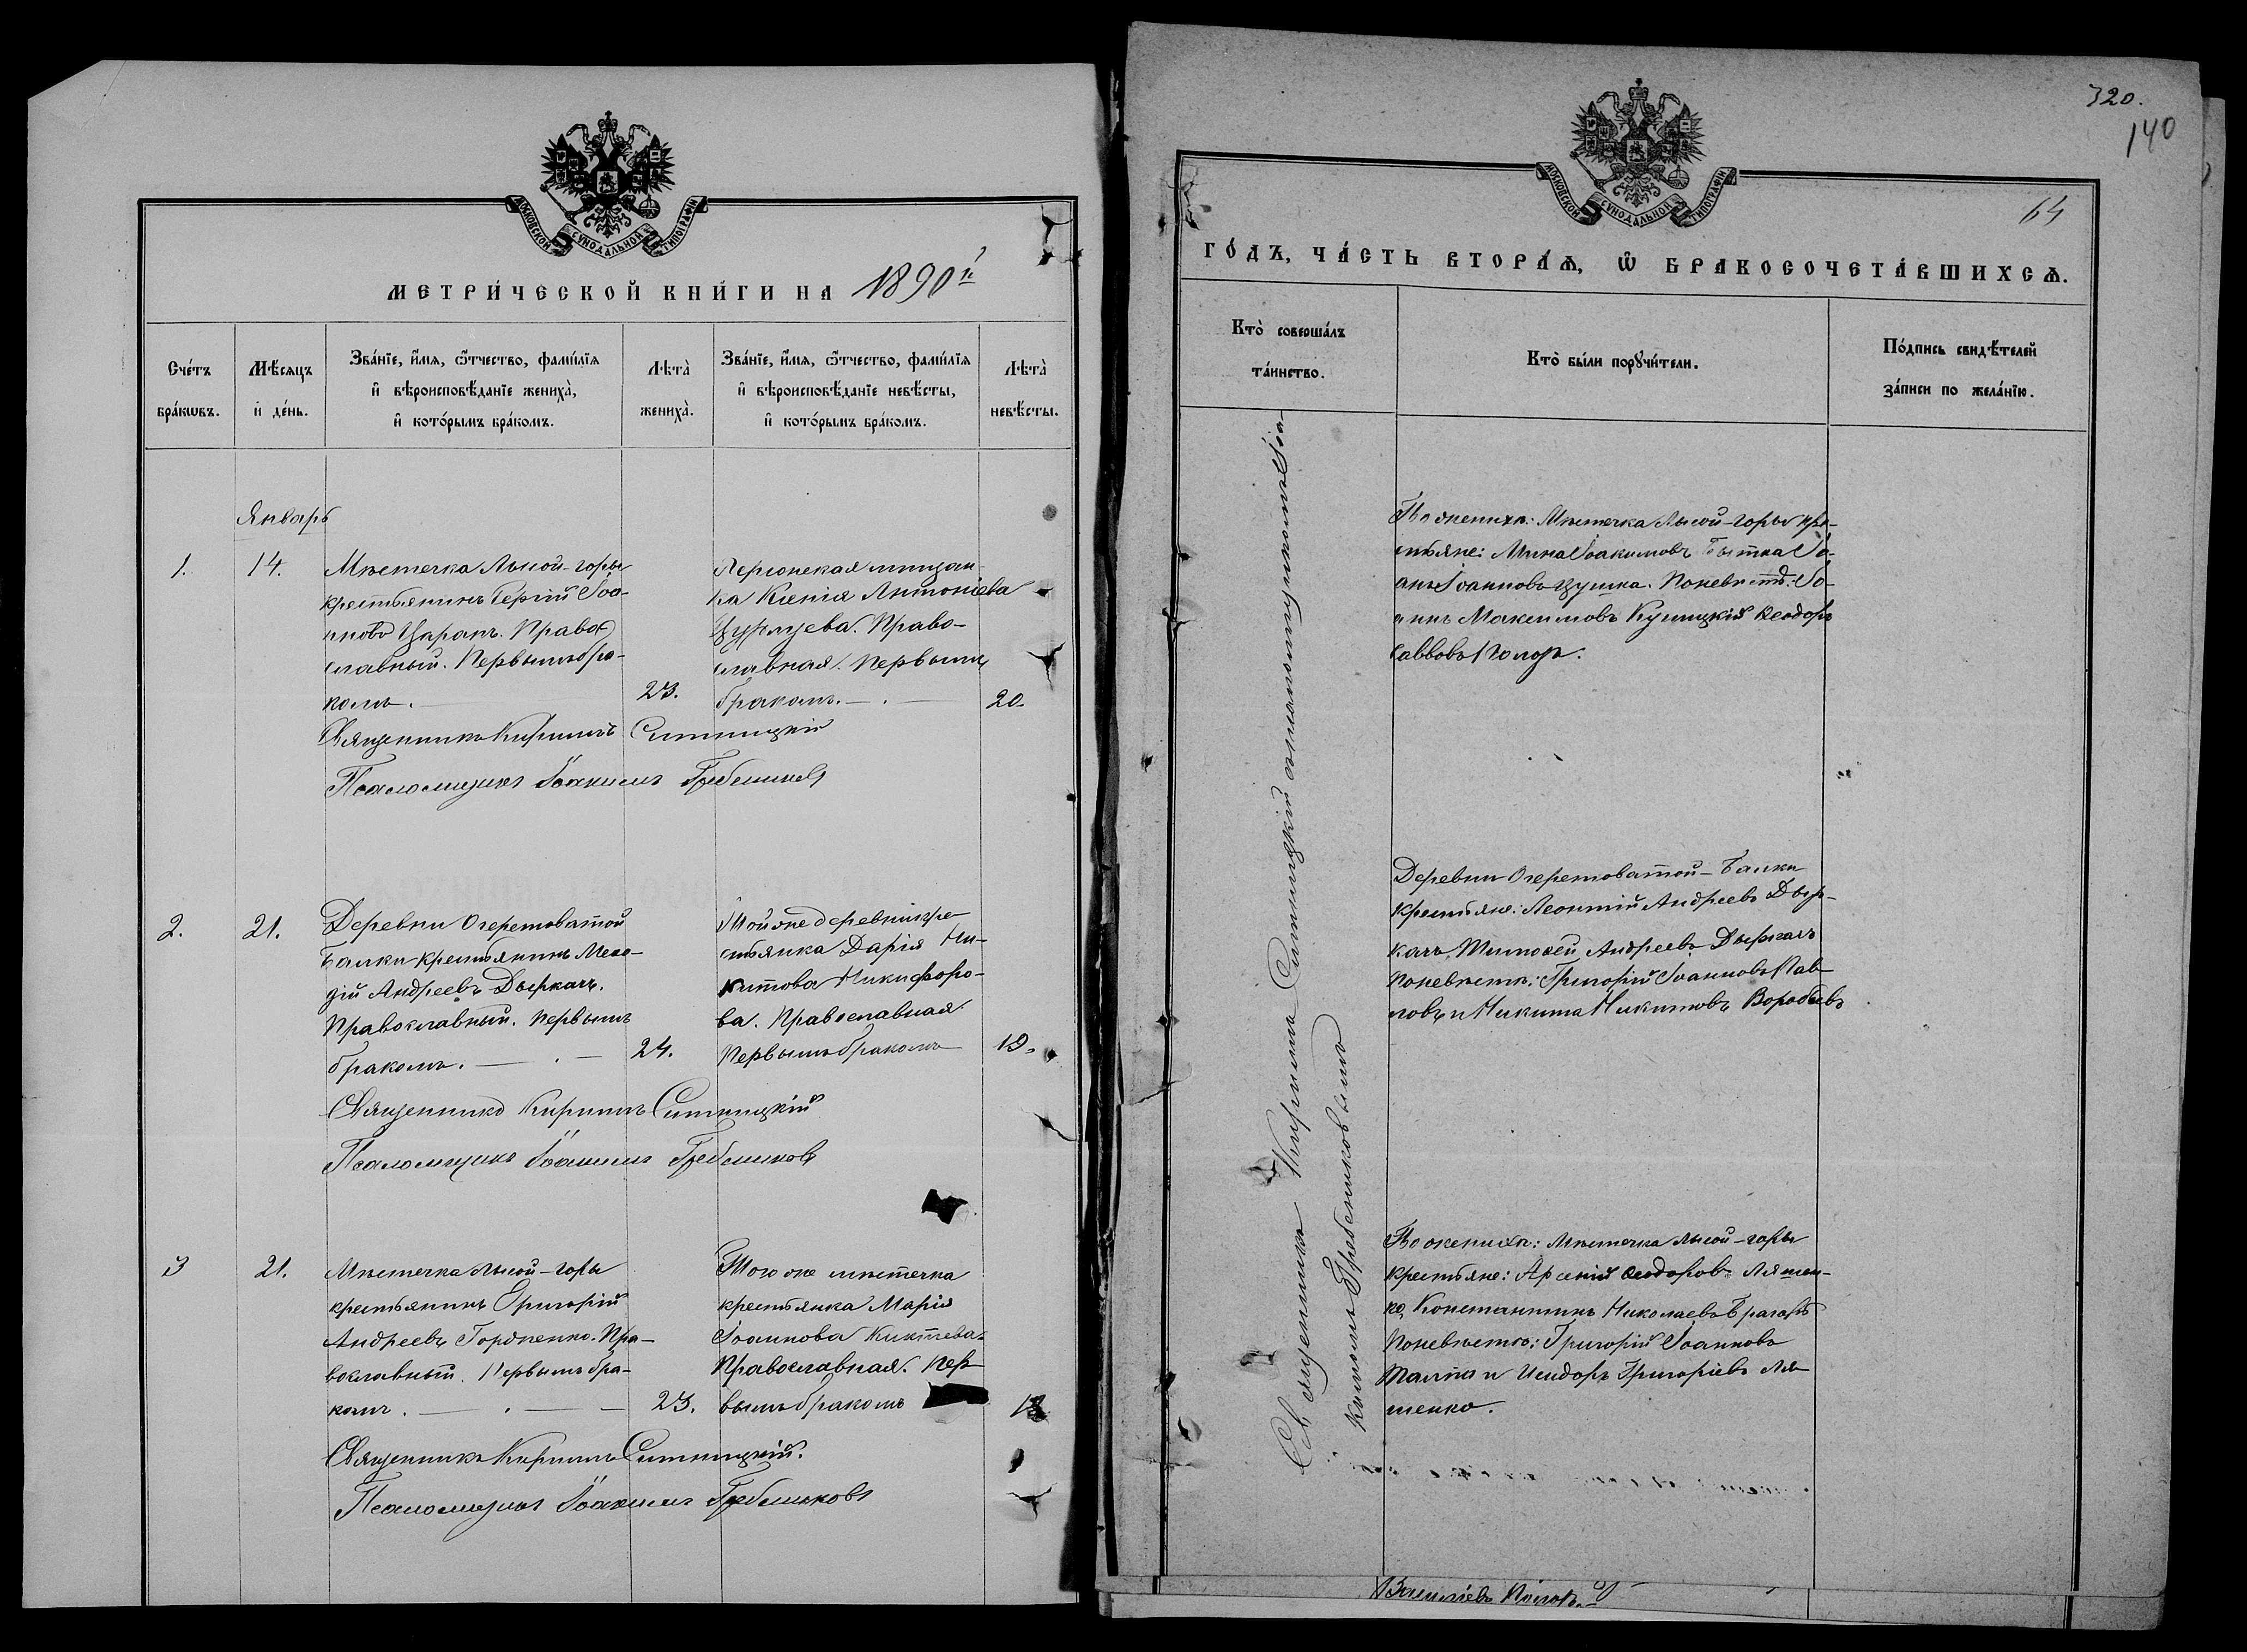 МОСКОВСКОЙ СѴНОДАЛЬНОЙ ТИПОГРАФІИ
МЕТРИ́ЧЕСКОЙ КНИ́ГИ НА 1890й
Сче́тъ бра́кѡвъ.
Мѣ́сяцъ и҆ де́нь.
Зва́нїе, и҆́мя, ѻ҆́тчество, фами́лїя
и҆ вѣроисповѣ́данїе жениха̀,
и҆ кото́рымъ бра́комъ.
Лѣта̀ жениха̀.
Зва́нїе, и҆́мя, ѻ҆́тчество, фами́лїя
и҆ вѣроисповѣ́данїе невѣ́сты,
и҆ кото́рымъ бра́комъ.
Лѣта̀ невѣ́сты.
Январь
1. 14.
Мѣстечка Лысой-горы
крестьянинъ Сергій Іоа-
нновъ Царанъ. Право-
славный. Первымъ бра-
комъ. 23.
Херсонская мѣщан-
ка Ксенія Антоніева
Православная. Первымъ
бракомъ. 20.
Священникъ Кириллъ Ситницкій
Псаломщикъ Іоакимъ Гребенниковъ
2. 21.
Деревни Очеретоватой
Балки крестьянинъ Мефо-
дій Андреевъ Дыркачъ.
Православный. Первымъ
бракомъ. 24.
Той же деревни кре-
стьянка Дарія Ни-
китова Никифоро-
ва. Православная.
Первымъ бракомъ 19.
Священникъ Кириллъ Ситницкій
Псаломщикъ Іоакимъ Гребенниковъ
3 21.
Мѣстечка Лысой-горы
крестьянинъ Григорій
Андреевъ Гордіенко. Пра-
вославный. Первымъ бра-
комъ. 23.
Того же мѣстечка
крестьянка Марія
Іоаннова Киктева.
Православная. Пер-
вымъ бракомъ 18
Священникъ Кириллъ Ситницкій.
Псаломщикъ Іоакимъ Гребенниковъ
320.
140
64
МОСКОВСКОЙ СѴНОДАЛЬНОЙ ТИПОГРАФІИ
ГО́ДЪ, ЧА́СТЬ ВТОРА́Я, Ѡ҆ БРАКОСОЧЕТА́ВШИХСЯ.
Кто̀ соверша́лъ
та́инство.
Кто̀ бы́ли порꙋчи́тели.
По́дпись свидѣ́телей
за́писи по жела́нїю.
Священникъ Кириллъ Ситницкій съ псаломщикомъ Іоа-
кимомъ Гребенниковымъ
По женихѣ: Мѣстечка Лысой-горы кре-
стьяне: Мина Іоакимовъ Бытка Іо-
анъ Іоанновъ Цушка. По невѣстѣ: Іо-
аннъ Максимовъ Кушицкій Феодоръ
Саввовъ
Деревни Очеретоватой-Балки
крестьяне: Леонтій Андреевъ Дыр-
качъ, Тимофей Андреевъ Дыркачъ
По невѣстѣ: Григорій Іоанновъ Пав-
ловъ и Никита Никитовъ Воробьевъ
По женихѣ: Мѣстечка Лысой-горы
крестьяне: Арсеній Феодоровъ Ляшен-
ко, Константинъ Николаевъ
По невѣстѣ: Григорій Іоанновъ
Талпа и Исидоръ Григоріевъ Ля-
шенко.
Василіевъ